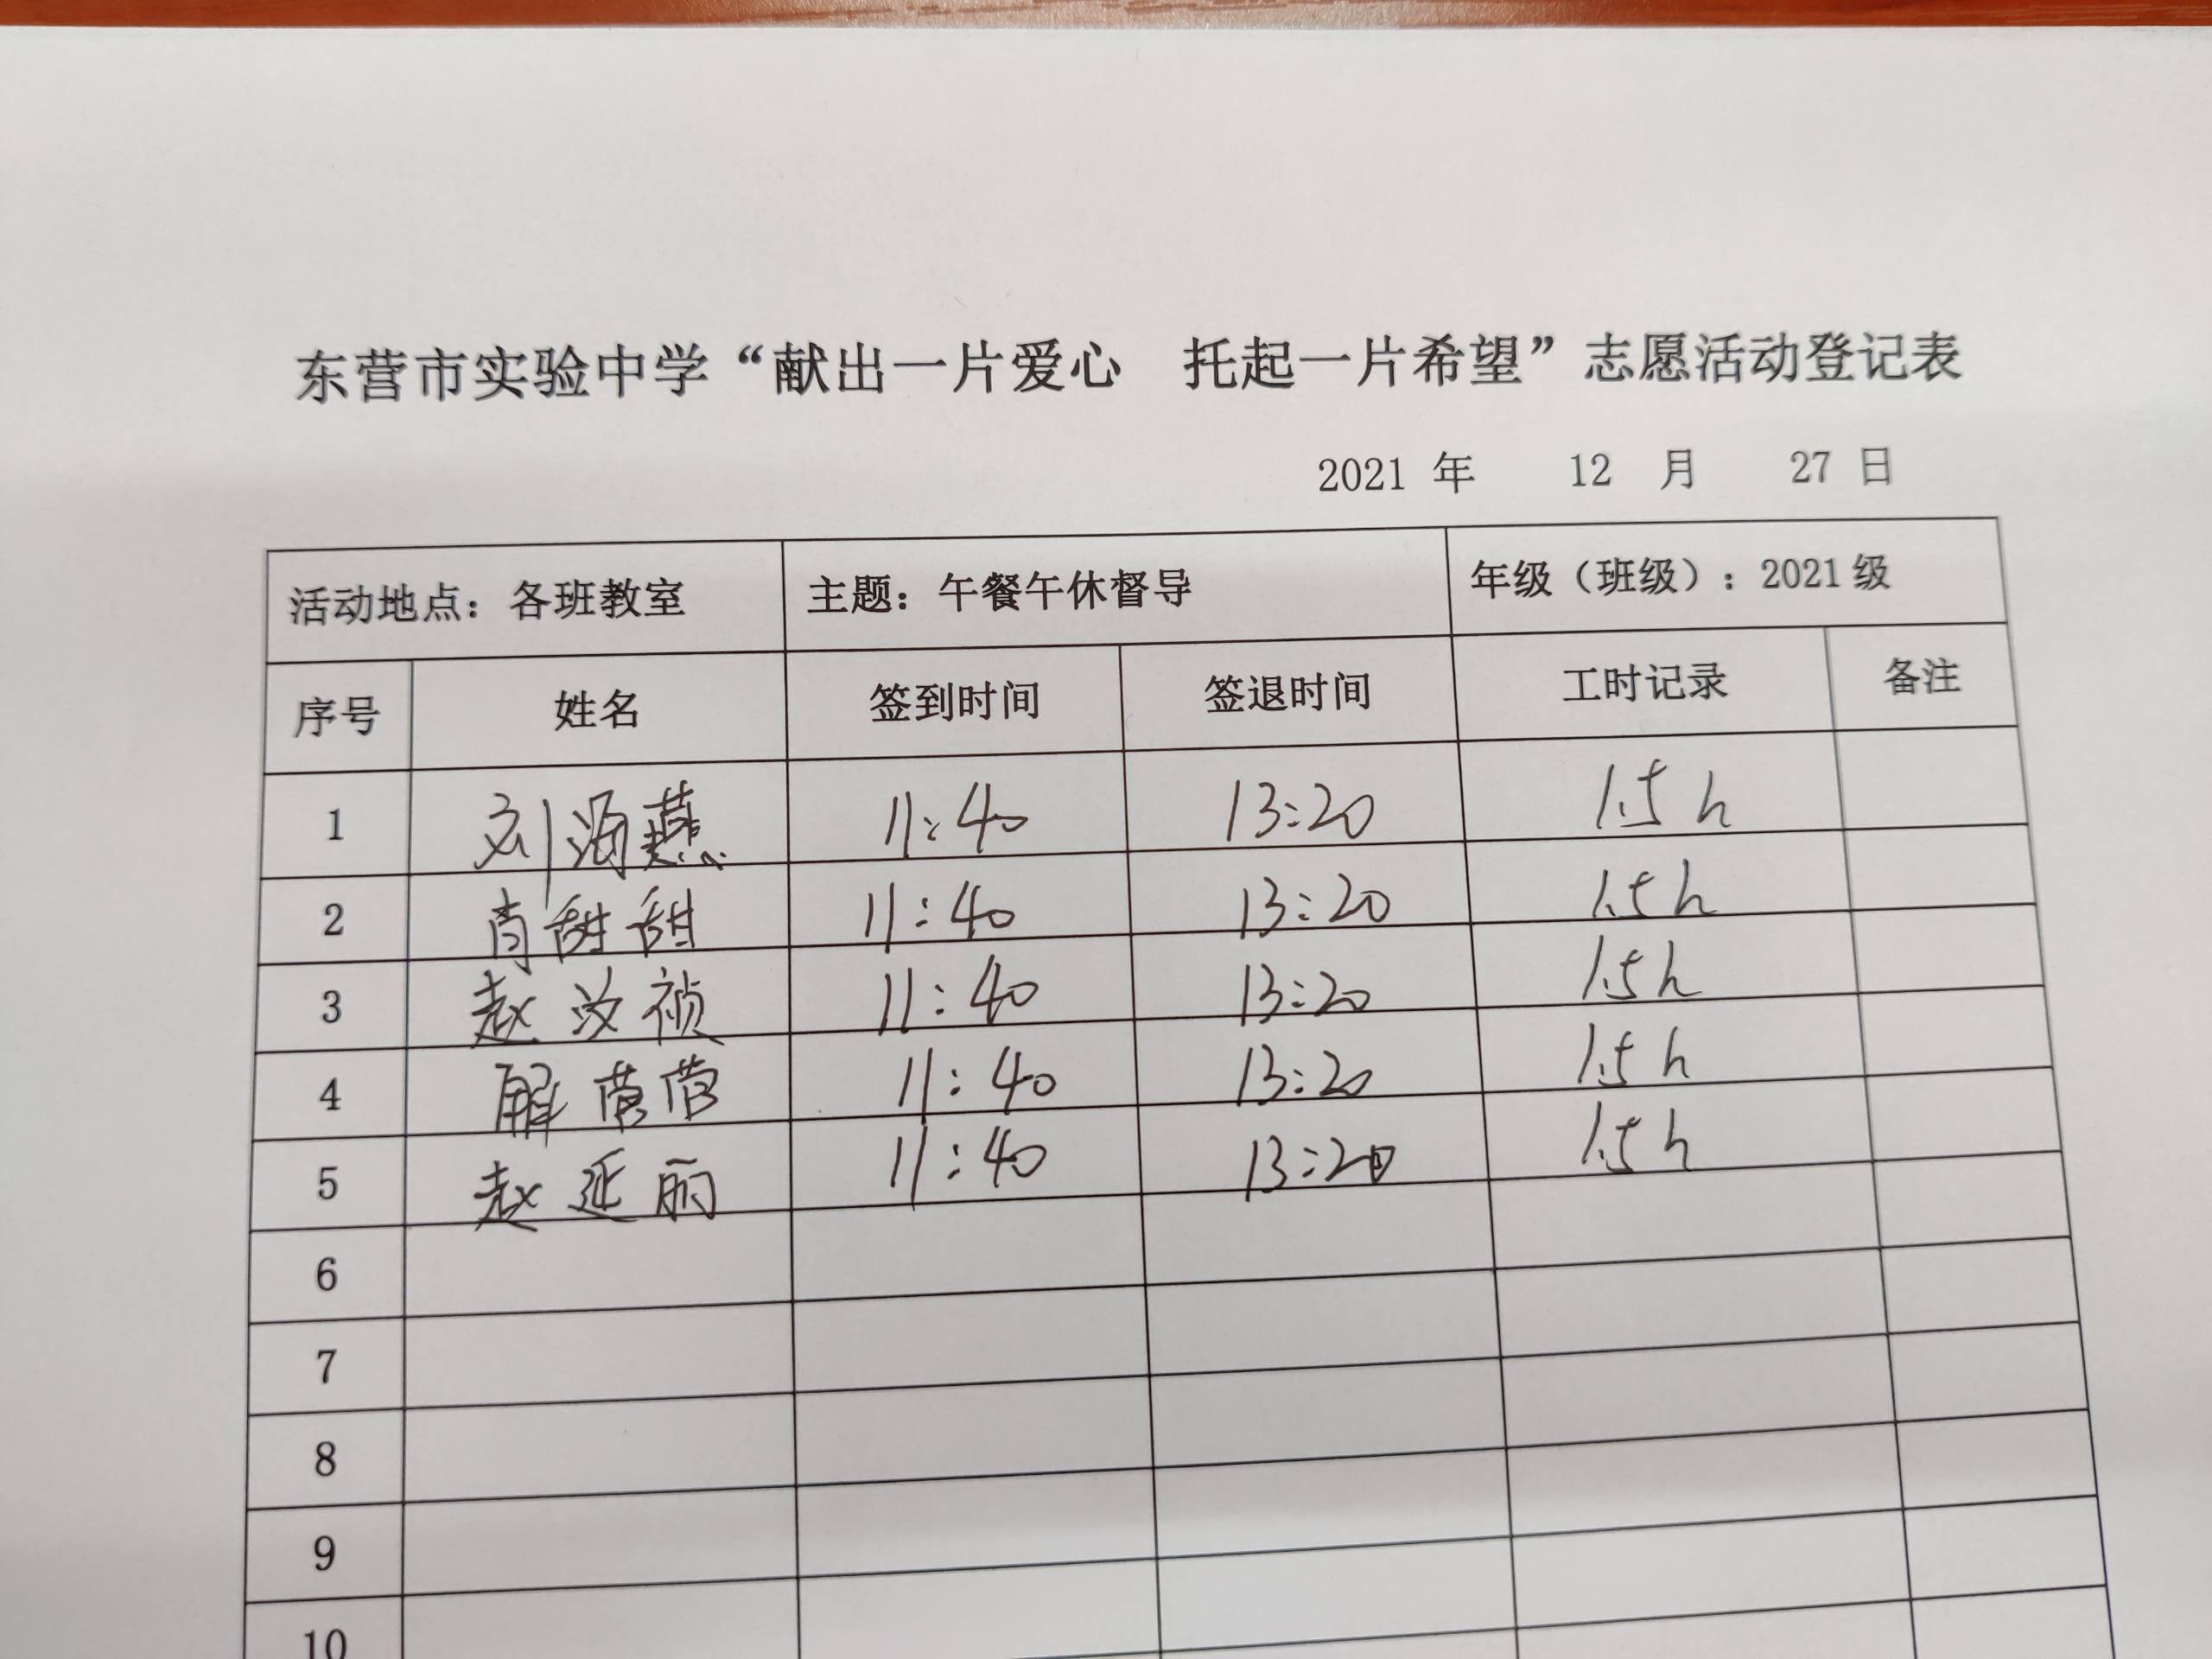 东营市实验中学“献出一片爱心　托起一片希望”志愿活动登记表
2021 年 12 月 27 日
活动地点：各班教室 主题：午餐午休督导 年级（班级）：2021级
序号 姓名 签到时间 签退时间 工时记录 备注
1 刘海燕 11:40 13:20 1.5h
2 肖甜甜 11:40 13:20 1.5h
3 赵汝祯 11:40 13:20 1.5h
4 解 11:40 13:20 1.5h
5 赵延丽 11:40 13:20 1.5h
6
7
8
9
10